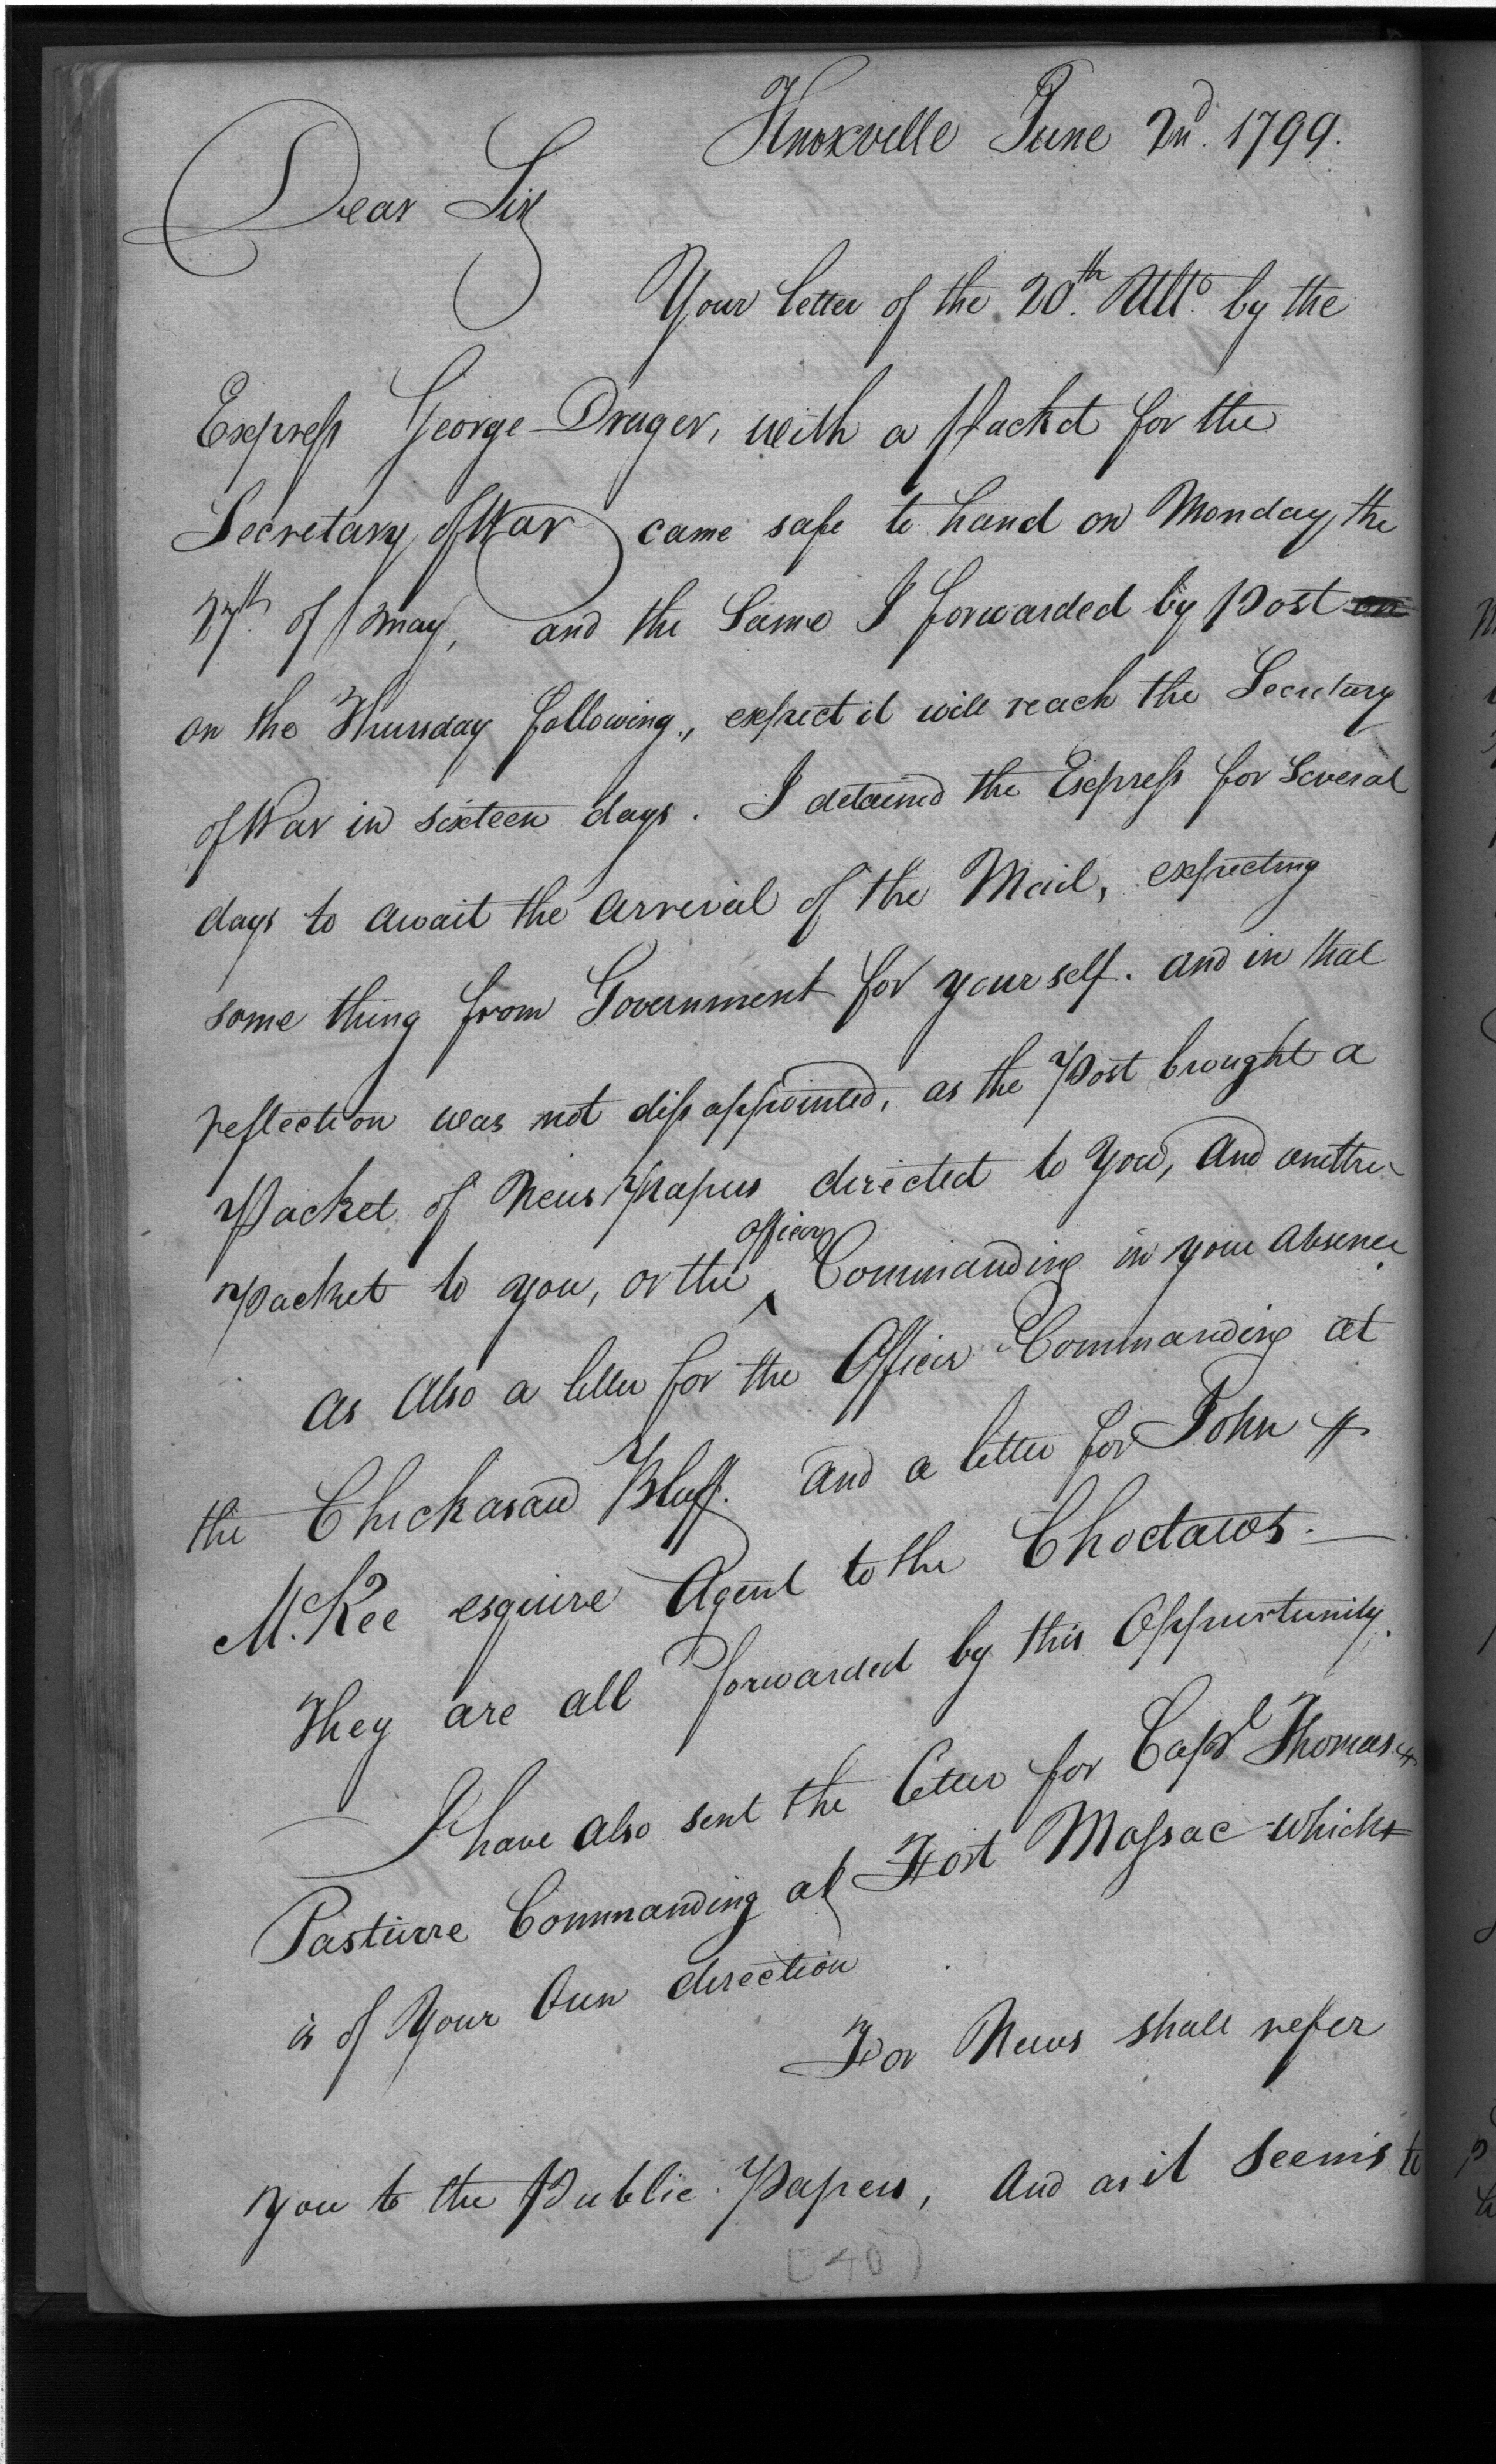 Knoxville June 2nd. 1799.
Dear Sir
Your letter of the 20th. Ulto. by the
Express George Drager, with a Packet for the
Secretary of War came safe to hand on Monday, the
27th. of May, and the Same I forwarded by Post on
on the Thursday following, expect it will reach the Secretary
of War in sixteen days. I detained the Express for Several
days to await the arrival of the Mail, expecting
some thing from Government for your self. and in that
reflection was not dissappointed, as the Post brought a
Packet of News Papers directed to You, and another
Packet to you, or the officer Commanding in your absence.
as Also a letter for the Officer Commanding at
the Chickasaw Bluff. and a letter for John
M.Kee esquire Agent to the Choctaws. —
They are all forwarded by this Oppurtunity.
I have also sent the letter for Capt Thomas
Pasturre Commanding at Fort Massac which
is of Your Own direction
For News shall refer
you to the Public Papers, And as it Seems to
[40]